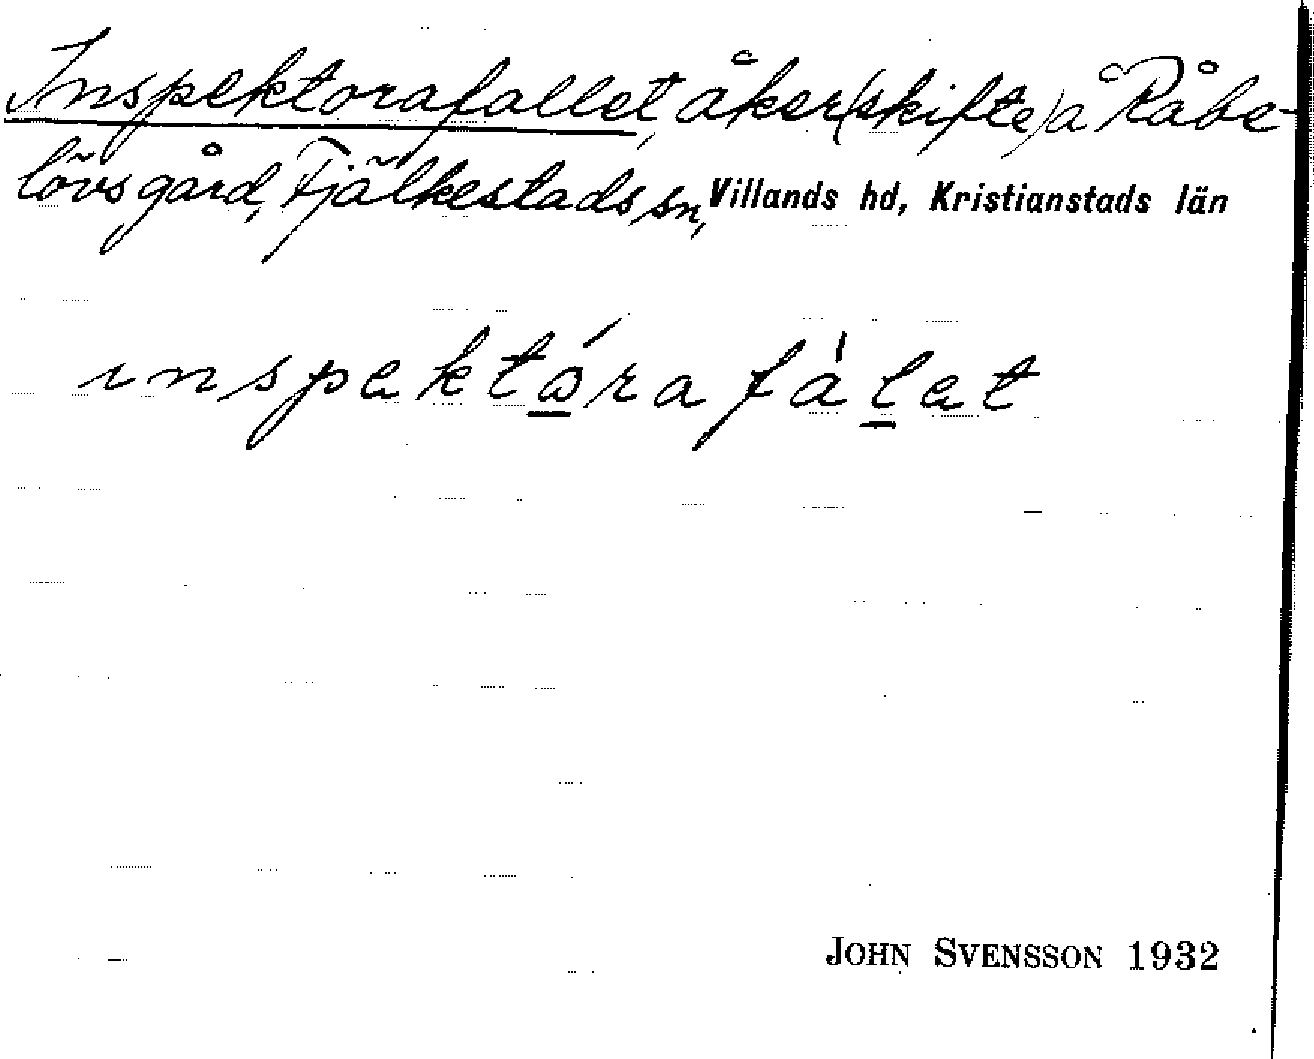 Inspektorafallet, åker(skifte) å Råbe-
lövsgård, Fjälkestads sn, Villands hd, Kristianstads län
ınspektǿrafàlet
JOHN SVENSSON 1932